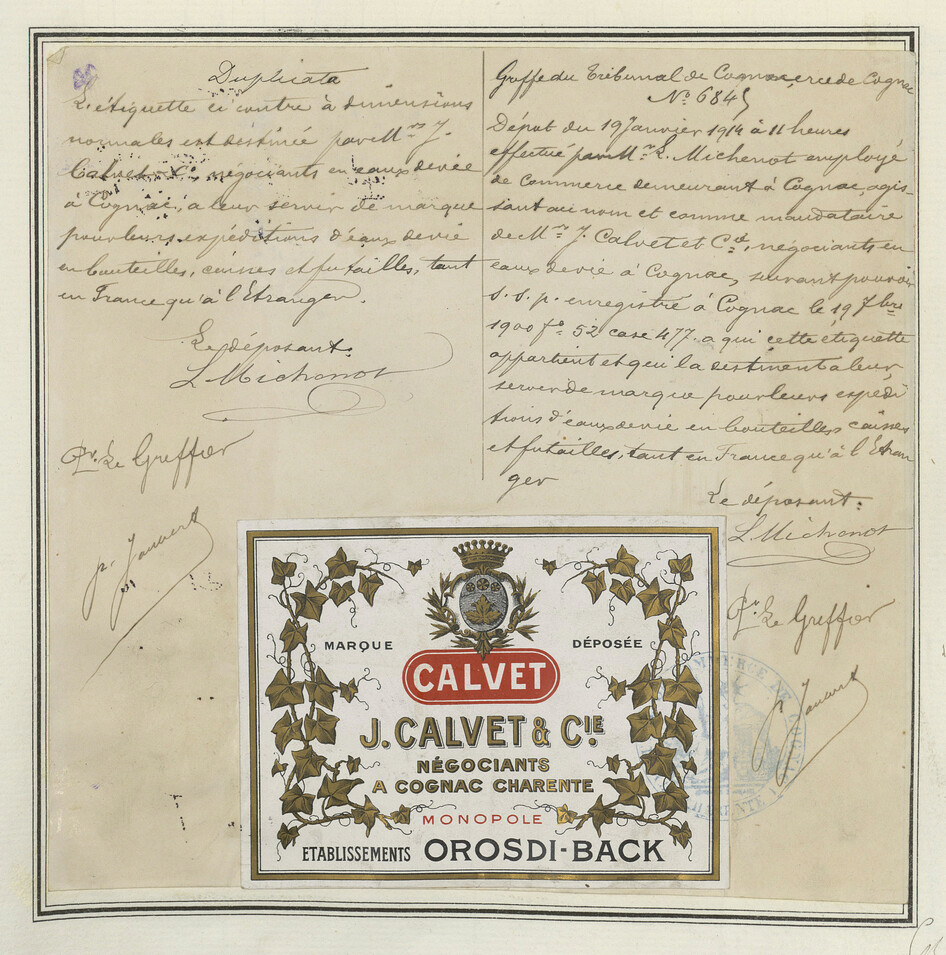 Duplicata
L'étiquette ci contre à dimensions
normales est destinée par M.rs J.
Calvet & Cie, négociants en eaux de vie
à Cognac, à leur servir de marque
pour leurs expéditions d'eaux de vie
en bouteilles, caisses et futailles, tant
en France qu'à l'Etranger.
Le déposant.
L Michenot
Pr. Le Greffier
Greffe du Tribunal de Commerce de Cognac
No 6845
Dépot du 19 Janvier 1914 à 11 heures
effectué par Mr L. Michenot employé
de commerce demeurant à Cognac, agis-
sant au nom et comme mandataire
de M.rs J. Calvet et Cie, négociants en
eaux de vie à Cognac, suivant pouvoir
s. s. p. enregistré à Cognac le 19 7bre
1900 fo 52 case 477. a qui cette étiquette
appartient et qui la destinent à leur
servir de marque pour leurs expédi
tions d'eaux de vie en bouteilles caisses
et futailles, tant en France qu'à l'Etran
ger
Le déposant:
L Michenot
Pr. Le Greffier
MARQUE DÉPOSÉE
CALVET
J. CALVET & CIE.
NÉGOCIANTS
A COGNAC CHARENTE
MONOPOLE
ETABLISSEMENTS OROSDI-BACK